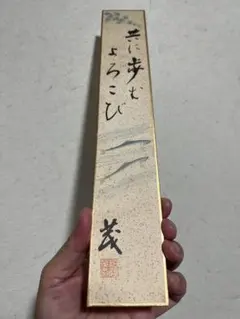 共に歩む
よろこび
茂